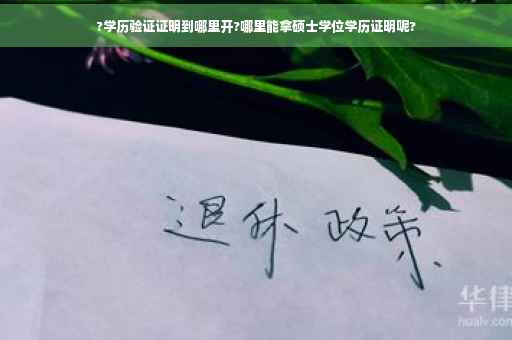 ?学历验证证明到哪里开?哪里能拿硕士学位学历证明呢?
退休 政策
华律
hualv.com